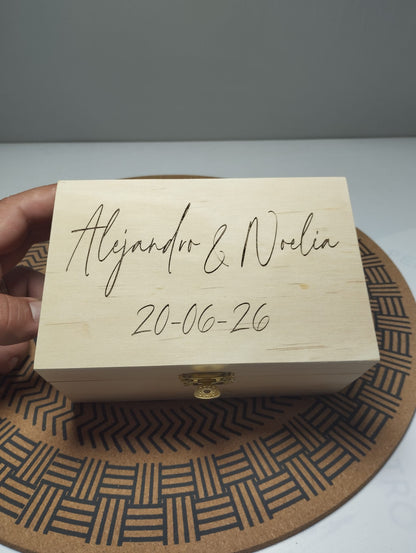 Alejandro & Noelia
20-06-26